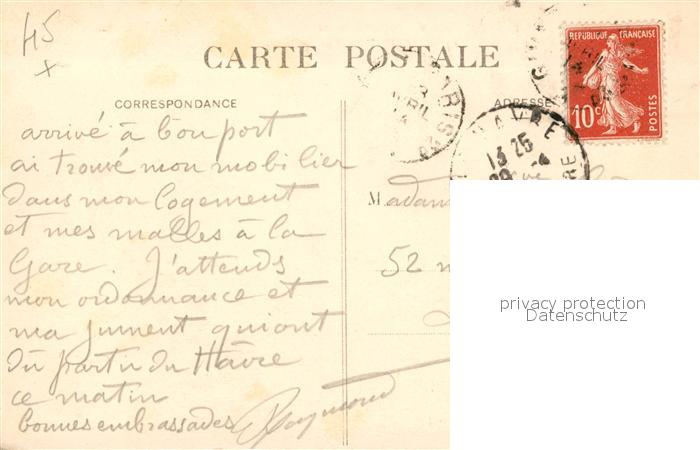 45
x
CARTE POSTALE
CORRESPONDANCE
ADRESSE
REPUBLIQUE FRANÇAISE
10c
POSTES
PARIS
AVRIL
HAVRE
13 25
arrivé à bon port
ai trouvé mon mobilier
dans mon logement
et mes malles à la
Gare. J'attends
mon ordonnance et
ma jument qui ont
dû partir du Hâvre
ce matin
bonnes embrassades
Raymond
Madam
52
privacy protection
Datenschutz